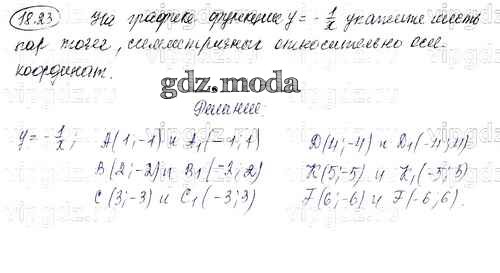 18.23 На графике функции y = - 1/x укажите шесть
пар точек, симметричных относительно осей
координат.
gdz.moda
Решение:
y = - 1/x; A(1;-1) и A₁(-1;1) D(4;-4) и D₁(-4;4)
B(2;-2) и B₁(-2;2) K(5;-5) и K₁(-5;5)
C(3;-3) и C₁(-3;3) F(6;-6) и F(-6;6).